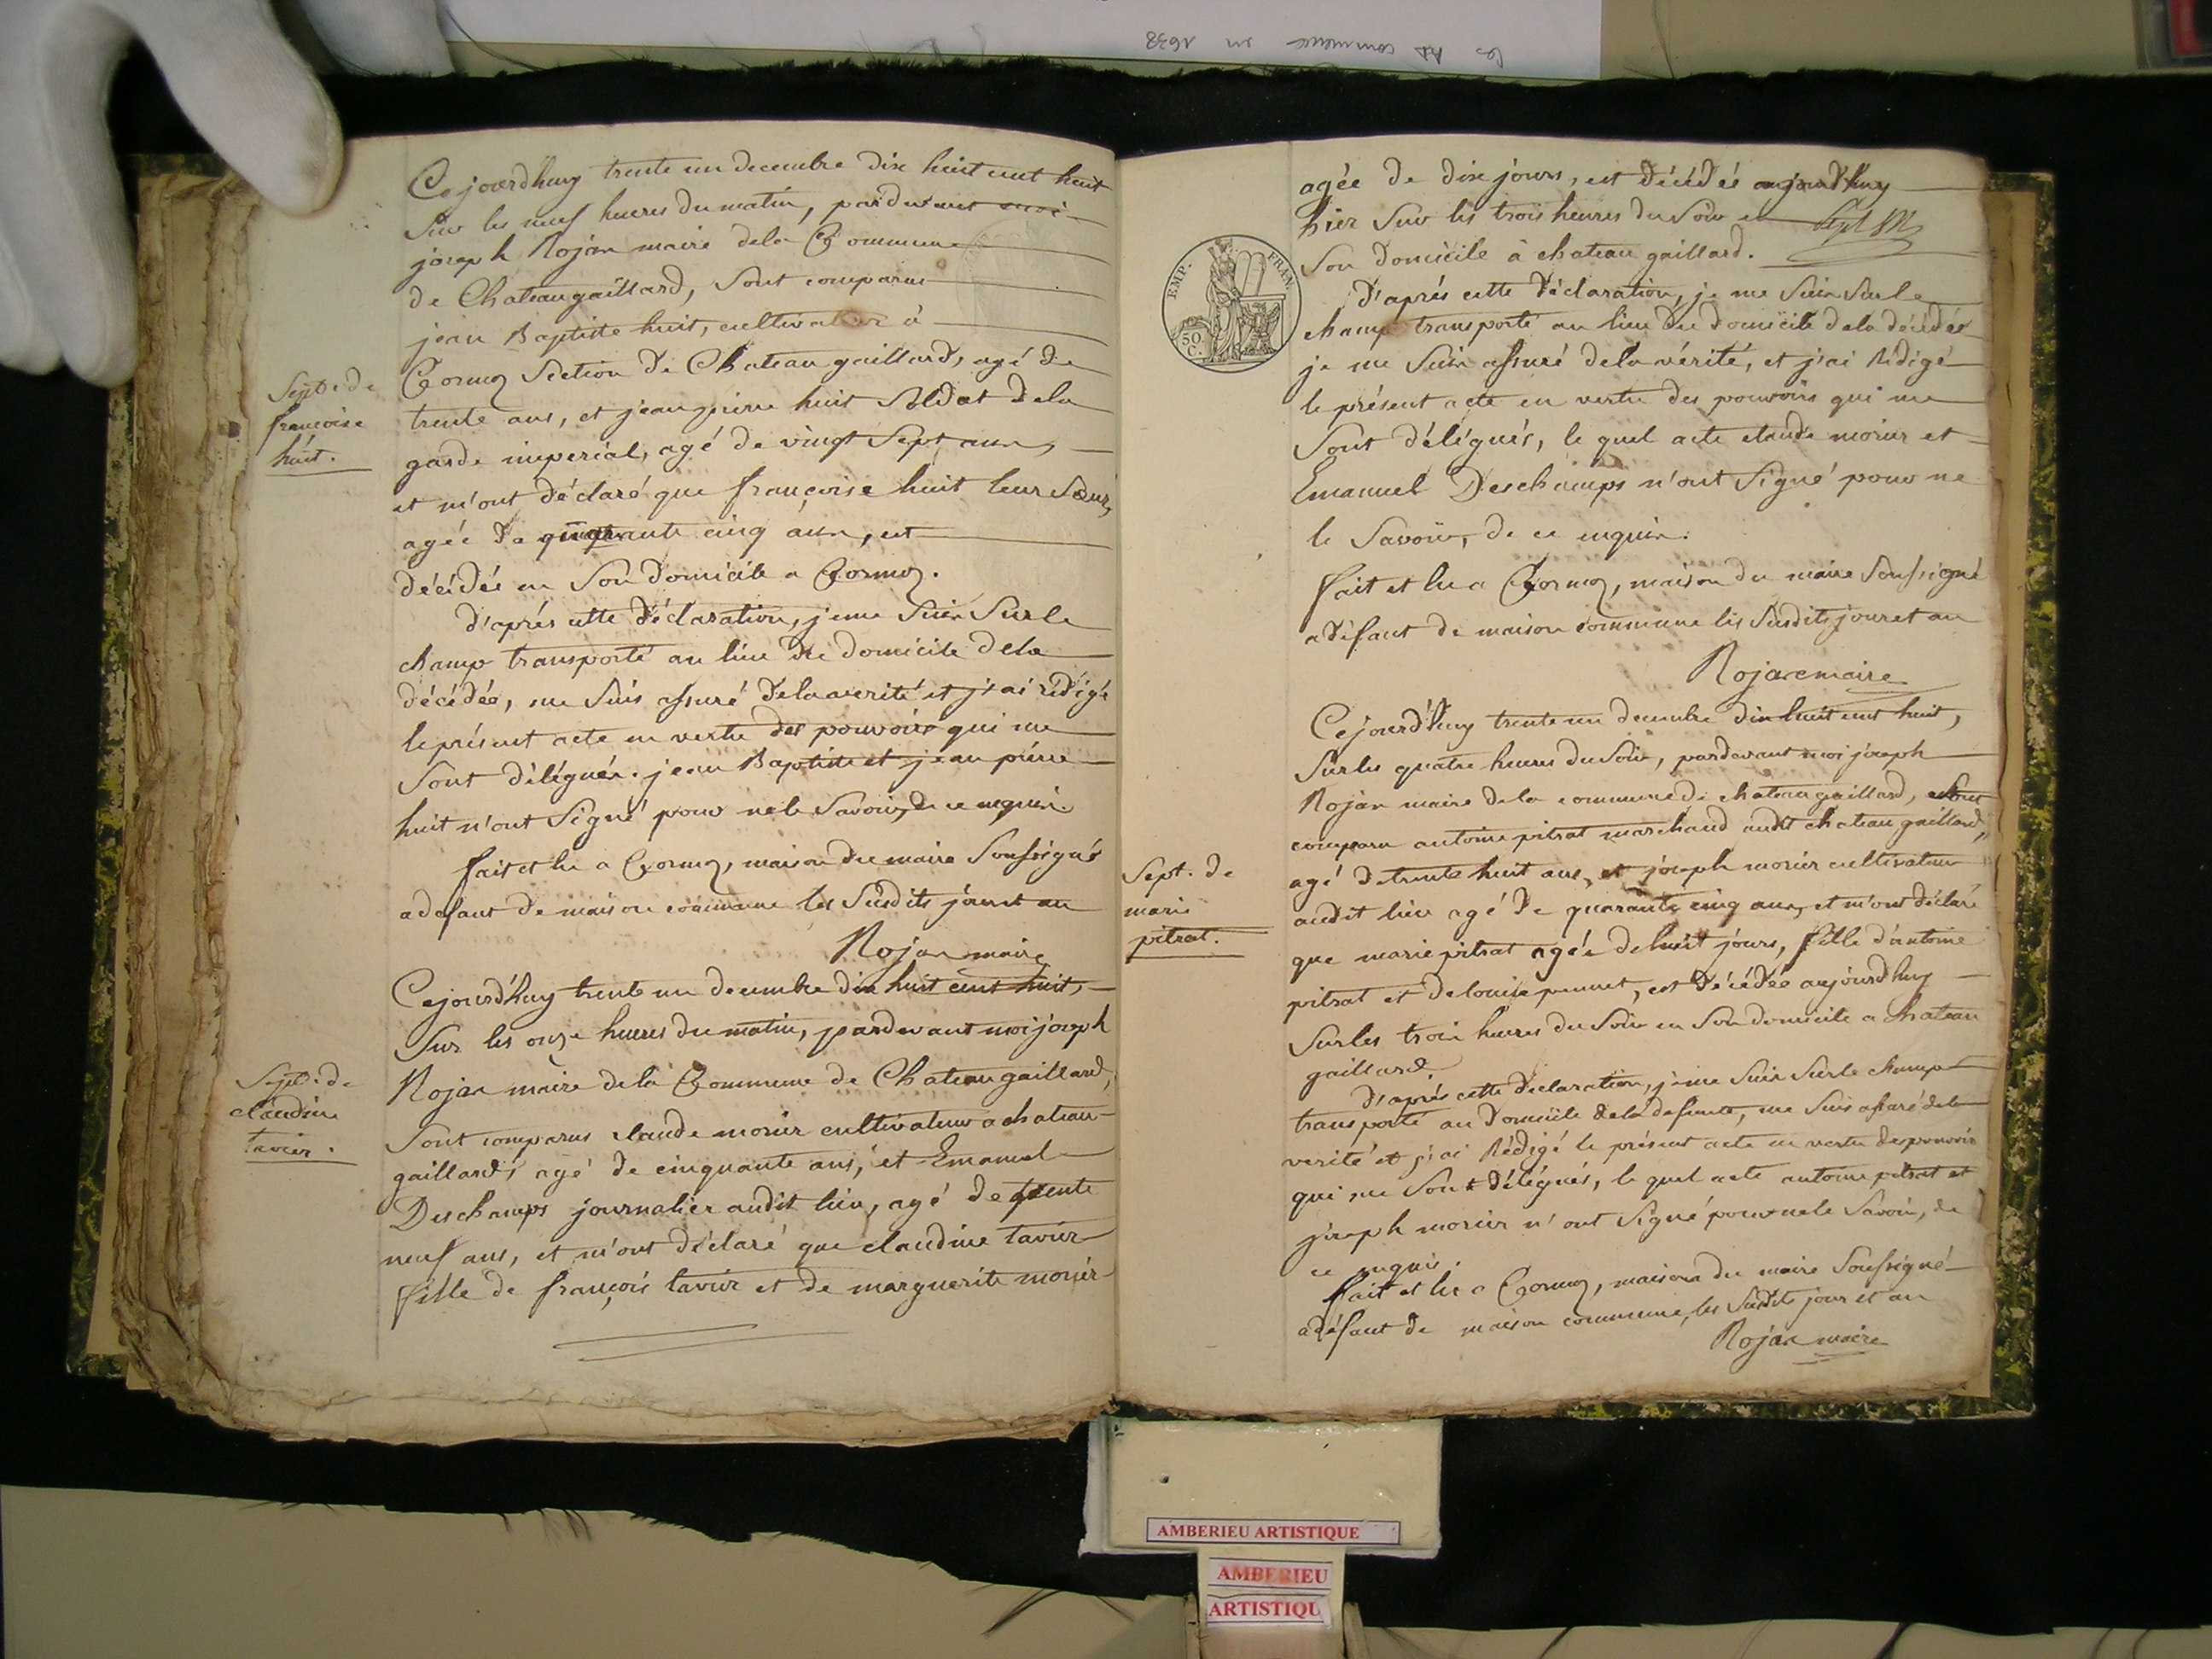 Ces Act commence en 1638
Cejourd'huy trente un decembre dix huit cent huit
Sur les neuf heures du matin, pardevant moi
joseph Rojan maire dela Commune
de Chateaugaillard, Sont comparus
jean Baptiste huit, cultivateur à
Cormoz Section de Chateau gaillard, agé de
trente ans, et jean pierre huit Soldat dela
garde imperial, agé de vingt Sept ans,
et m'ont déclaré que françoise huit leur Sœur,
agée de quarante cinq ans, est
décédée en Son domicile a Cormoz.
D'aprés cette déclaration, je me Suis Surle
champ transporté au lieu du domicile dela
décédée, me Suis assuré dela verité et j'ai rédigé
le présent acte en vertu des pouvoirs qui me
Sont délégués. jean Baptiste et jean piérre
huit n'ont Signé pour ne le Savoir, de ce enquis.
fait et lu a Cormoz, maison du maire Soussigné
a defaut de maison commune les Susdits jour et an
Rojan maire
Septe de
françoise
huit.
Cejourd'huy trente un decembre dix huit cent huit,
Sur les onze heures du matin, pardevant moi joseph
Rojan maire dela Commune de Chateaugaillard,
Sont comparus claude morier cultivateur a chateau
gaillard, agé de cinquante ans, et Emanuel
Deschamps journalier audit lieu, agé de trente
neuf ans, et m'ont déclaré que claudine tavier
fille de françois tavier et de marguerite morier
Septe de
claudine
tavier.
agée de dix jours, est décédée aujourd'huy
hier Sur les trois heures du Soir en
Son domicile à chateau gaillard.
D'aprés cette déclaration, je me Suis Surle
champ transporté au lieu du domicile dela décédée
je me Suis assuré dela vérité, et j'ai Rédigé
le présent acte en vertu des pouvoirs qui me
Sont délégués, le quel acte claude morier et
Emanuel Deschamps n'ont Signé pour ne
le Savoir, de ce enquis.
fait et lu a Cormoz, maison du maire Soussigné
a défaut de maison commune les Susdits jour et an
Rojan maire
EMP. FRAN.
50
C.
Cejourd'huy trente un decembre dix huit cent huit,
Sur les quatre heures du Soir, pardevant moi joseph
Rojan maire dela commune de chateau gaillard, Sont
comparu antoine pitrat marchand audit chateau gaillard,
agé de trente huit ans, et joseph morier cultivateur
audit lieu agé de quarante cinq ans, et m'ont déclaré
que marie pitrat agée de huit jours, fille d'antoine
pitrat et de louise pennet, est décédée aujourd'huy
Sur les trois heures du Soir en Son domicile a chateau
gaillard.
D'aprés cette déclaration, je me Suis Surle champ
transporté au domicile dela defunte, me Suis assuré dela
verité et j'ai Rédigé le présent acte en vertu des pouvoirs
qui me Sont délégués, le quel acte antoine pitrat et
joseph morier n'ont Signé pour ne le Savoir, de
ce enquis.
fait et lu a Cormoz, maison du maire Soussigné
a défaut de maison commune, les Susdits jour et an
Rojan maire
Sept. de
marie
pitrat.
AMBERIEU ARTISTIQUE
AMBERIEU
ARTISTIQU